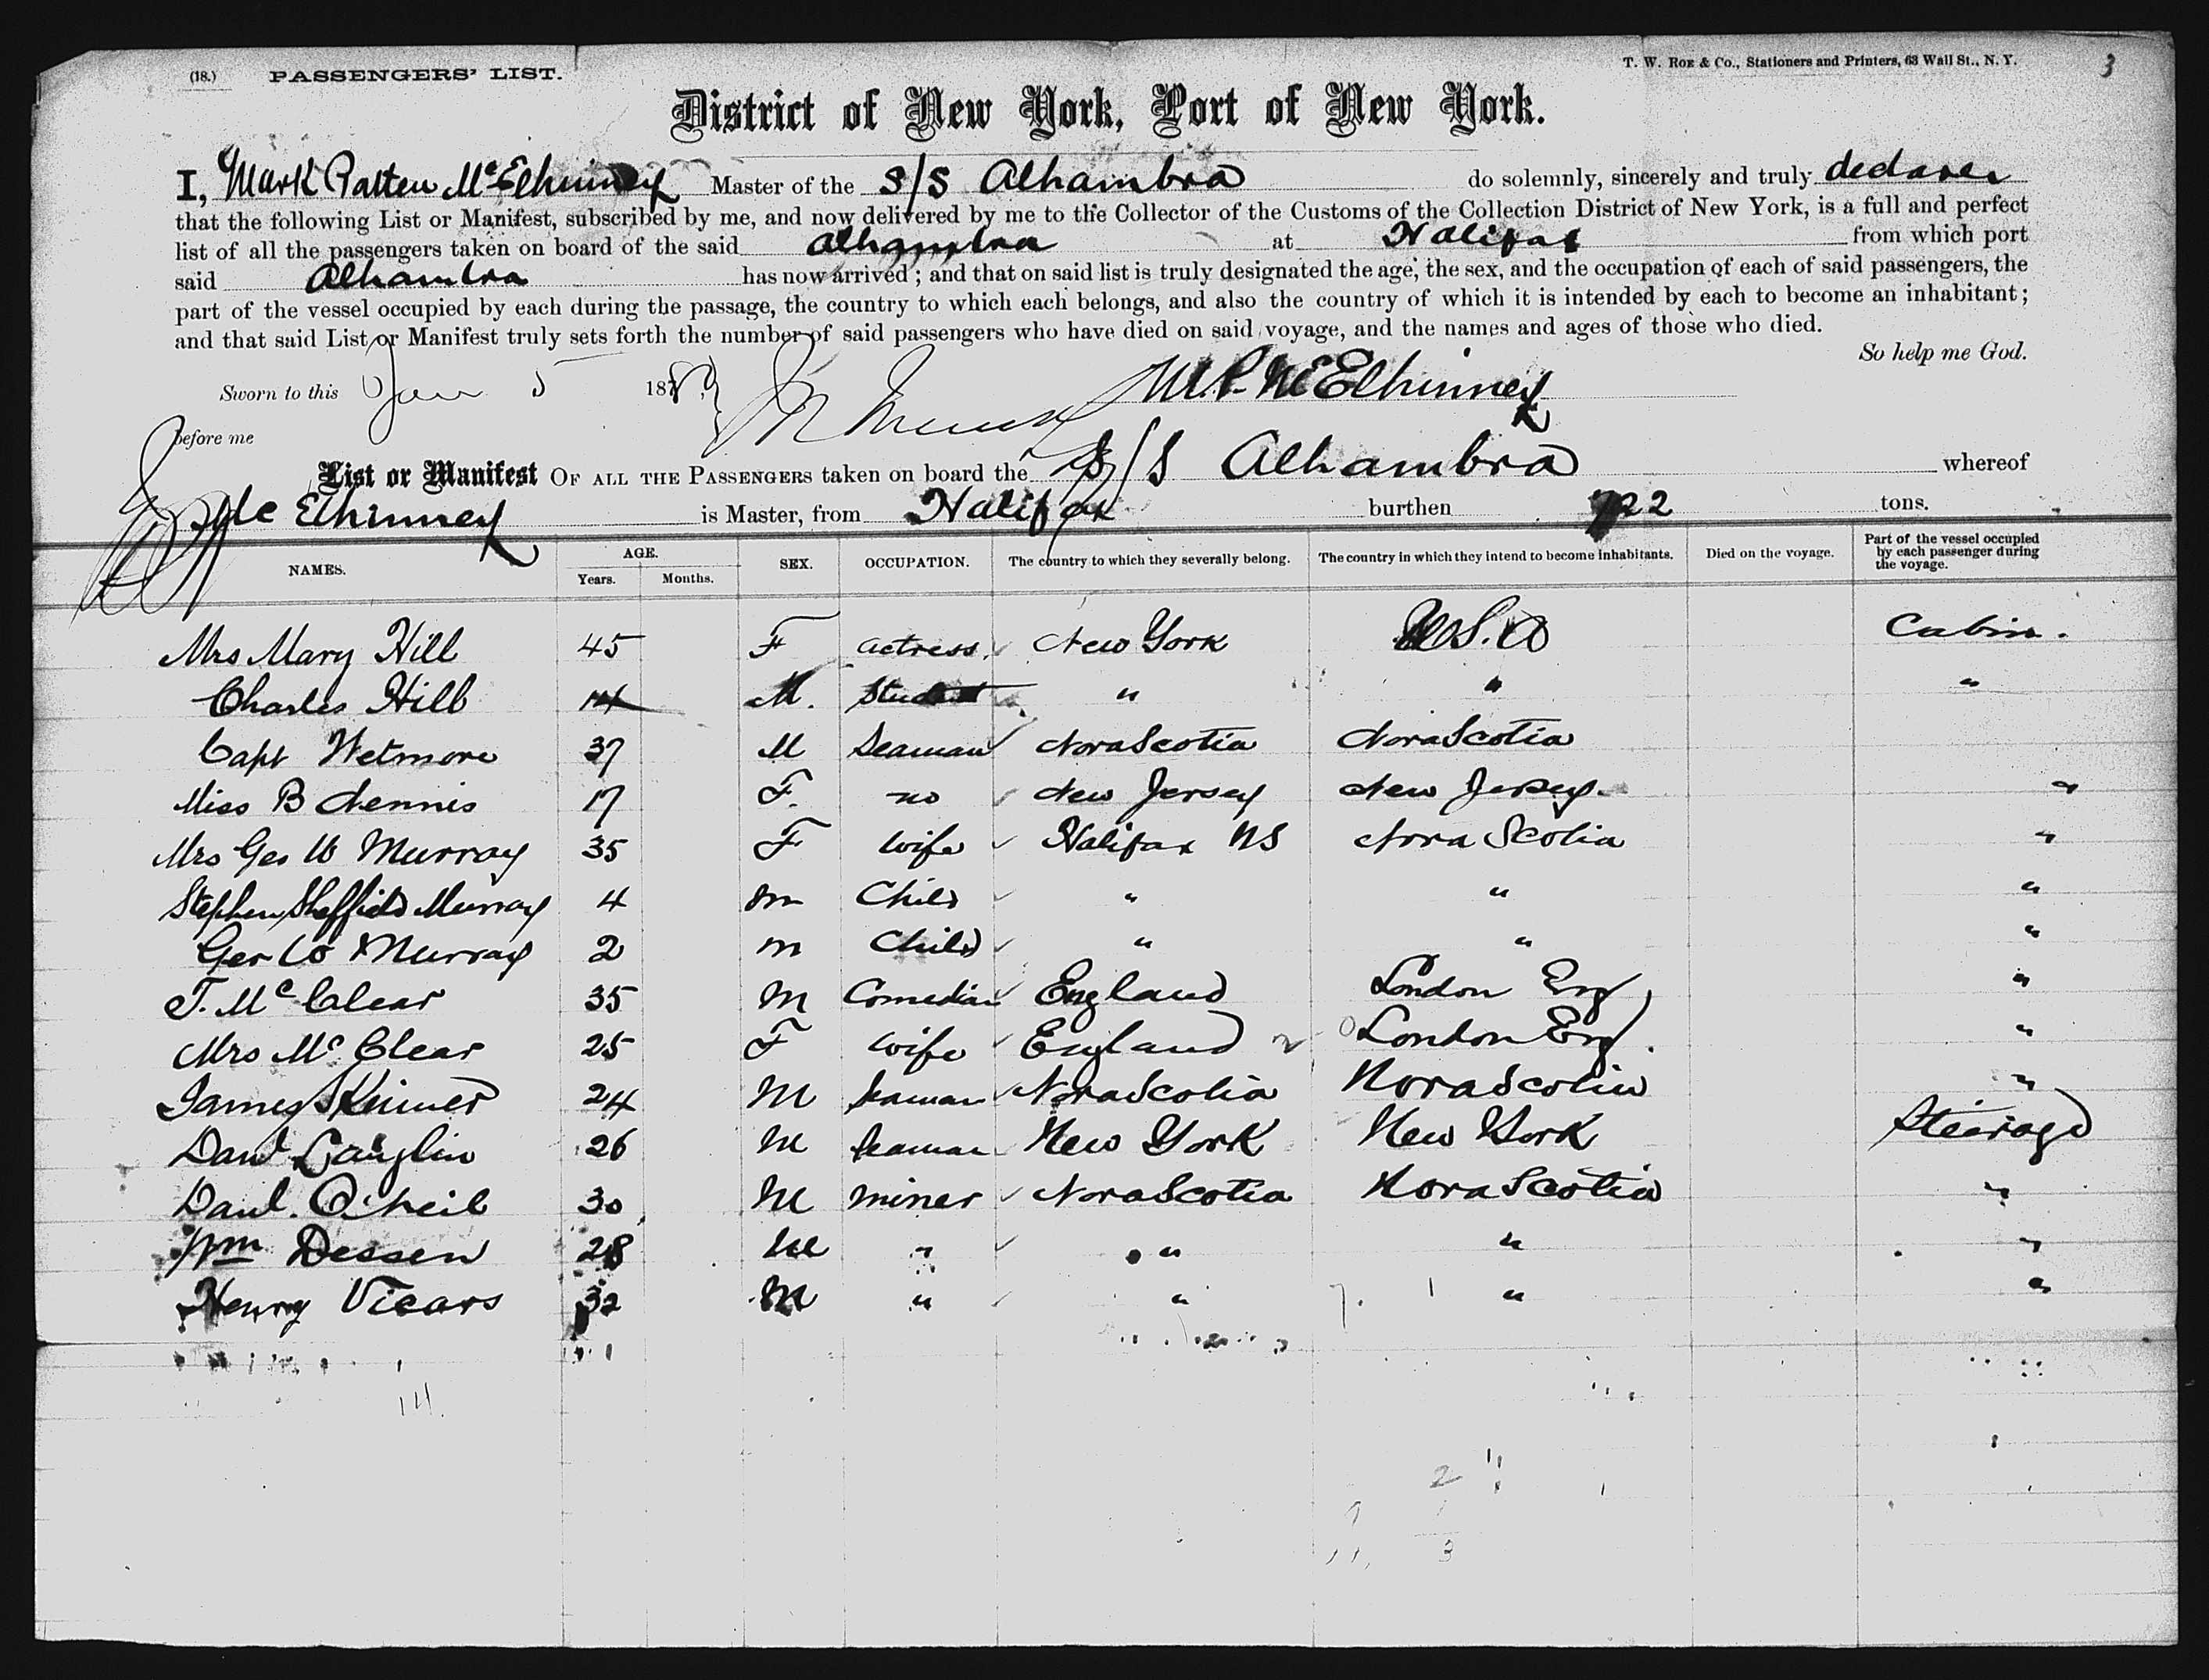 (18.) PASSENGERS' LIST. T. W. ROE & Co., Stationers and Printers, 63 Wall St., N. Y. 3
District of New York, Port of New York.
I, Mark Patten McElhinney Master of the S/S Alhambra do solemnly, sincerely and truly declare
that the following List or Manifest, subscribed by me, and now delivered by me to the Collector of the Customs of the Collection District of New York, is a full and perfect
list of all the passengers taken on board of the said Alhambra at Halifax from which port
said Alhambra has now arrived; and that on said list is truly designated the age, the sex, and the occupation of each of said passengers, the
part of the vessel occupied by each during the passage, the country to which each belongs, and also the country of which it is intended by each to become an inhabitant;
and that said List or Manifest truly sets forth the number of said passengers who have died on said voyage, and the names and ages of those who died.
So help me God.
Sworn to this Jan 5 18 M. P. McElhinney
before me
List or Manifest OF ALL THE PASSENGERS taken on board the S/S Alhambra whereof
McElhinney is Master, from Halifax burthen 722 tons.
NAMES. AGE. Years. Months. SEX. OCCUPATION. The country to which they severally belong. The country in which they intend to become inhabitants. Died on the voyage. Part of the vessel occupied by each passenger during the voyage.
Mrs Mary Hill 45 F actress New York U.S.A Cabin.
Charles Hill 14 M. Student " " "
Capt Wetmore 37 M Seaman Nova Scotia Nova Scotia
Miss B Dennis 17 F. no New Jersey New Jersey. "
Mrs Geo W Murray 35 F wife Halifax NS Nova Scotia "
Stephen Sheffield Murray 4 m Child " " "
Geo W Murray 2 m Child " " "
T. McClear 35 M Comedian England London Eng "
Mrs McClear 25 F wife England London Eng. "
James Skinner 24 M Seaman Nova Scotia Nova Scotia "
Danl Lauglin 26 M Seaman New York New York Steerage
Danl. O'Neil 30 M miner Nova Scotia Nova Scotia "
Wm Dessen 28 M " " " "
Henry Vicars 32 M " " " "
14.
2
3